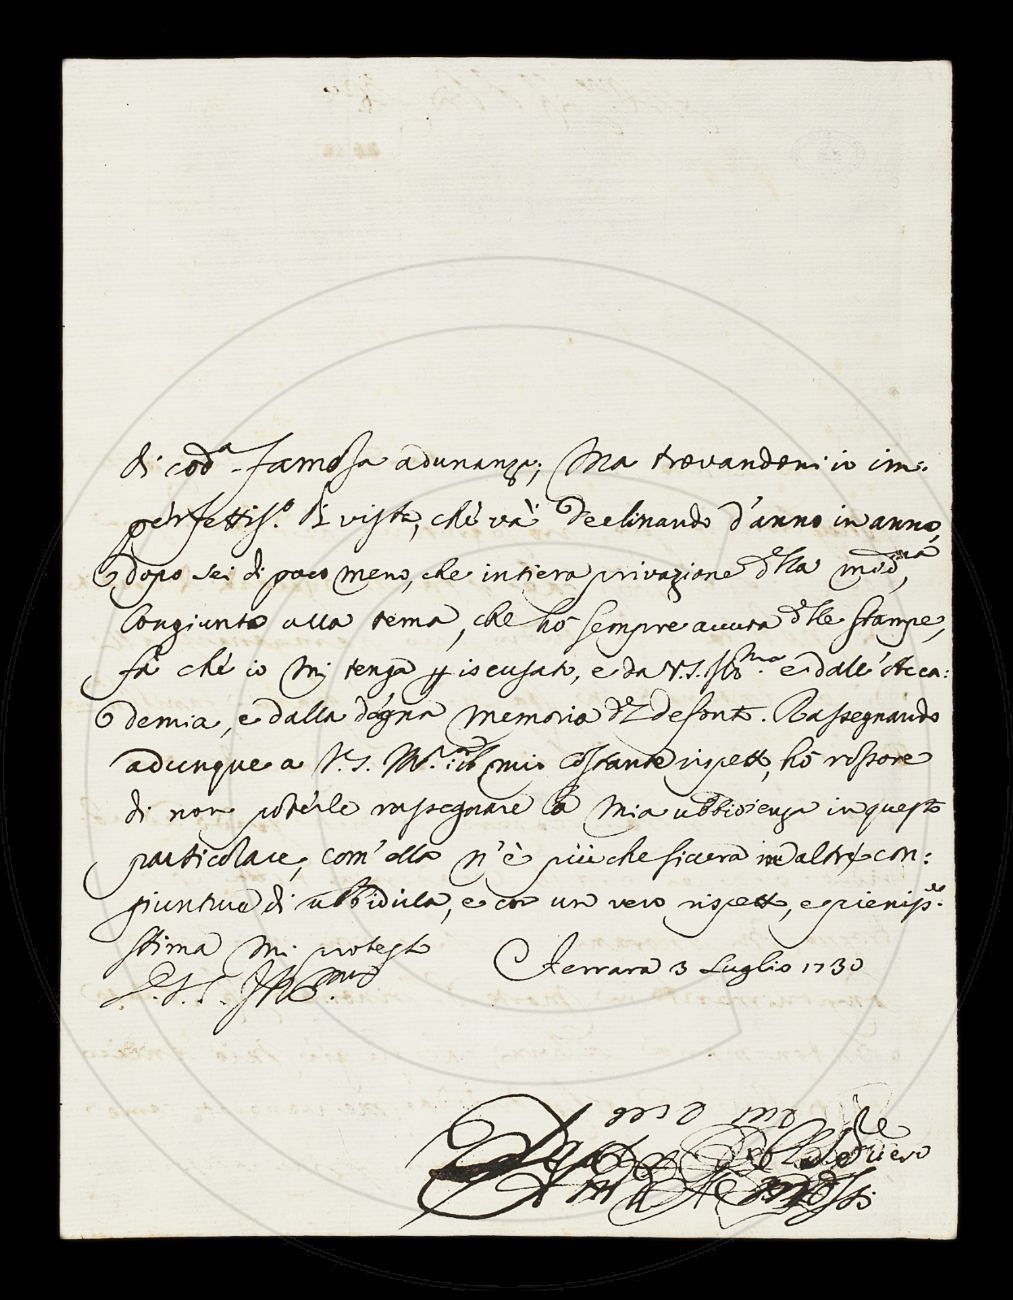 di cod.a famosa adunanza; Ma trovandomi io im:
perfettis.o di vista, chè và declinando d'anno in anno,
dopo sei di poco meno, che intiera privazione della med.ma,
Congiunta alla tema, che hò sempre avuta delle stampe,
fà chè io mi tenga p iscusato, e da V.S. Ill.ma e dall'Acca:
demia, e dalla degna memoria del defonto. Rassegnando
adunque a V.S. il mio costante rispetto, hò rossore
di non poterle rassegnare la mia ubbidienza in questo
particolare, com'ella n'è più che sicura in altre con:
giunture di ubbidirla, e con un vero rispetto, e pieniss.
stima mi protesto
D.V.S. Ill.ma Ferrara 3 Luglio 1730
Dev.mo Ser.re